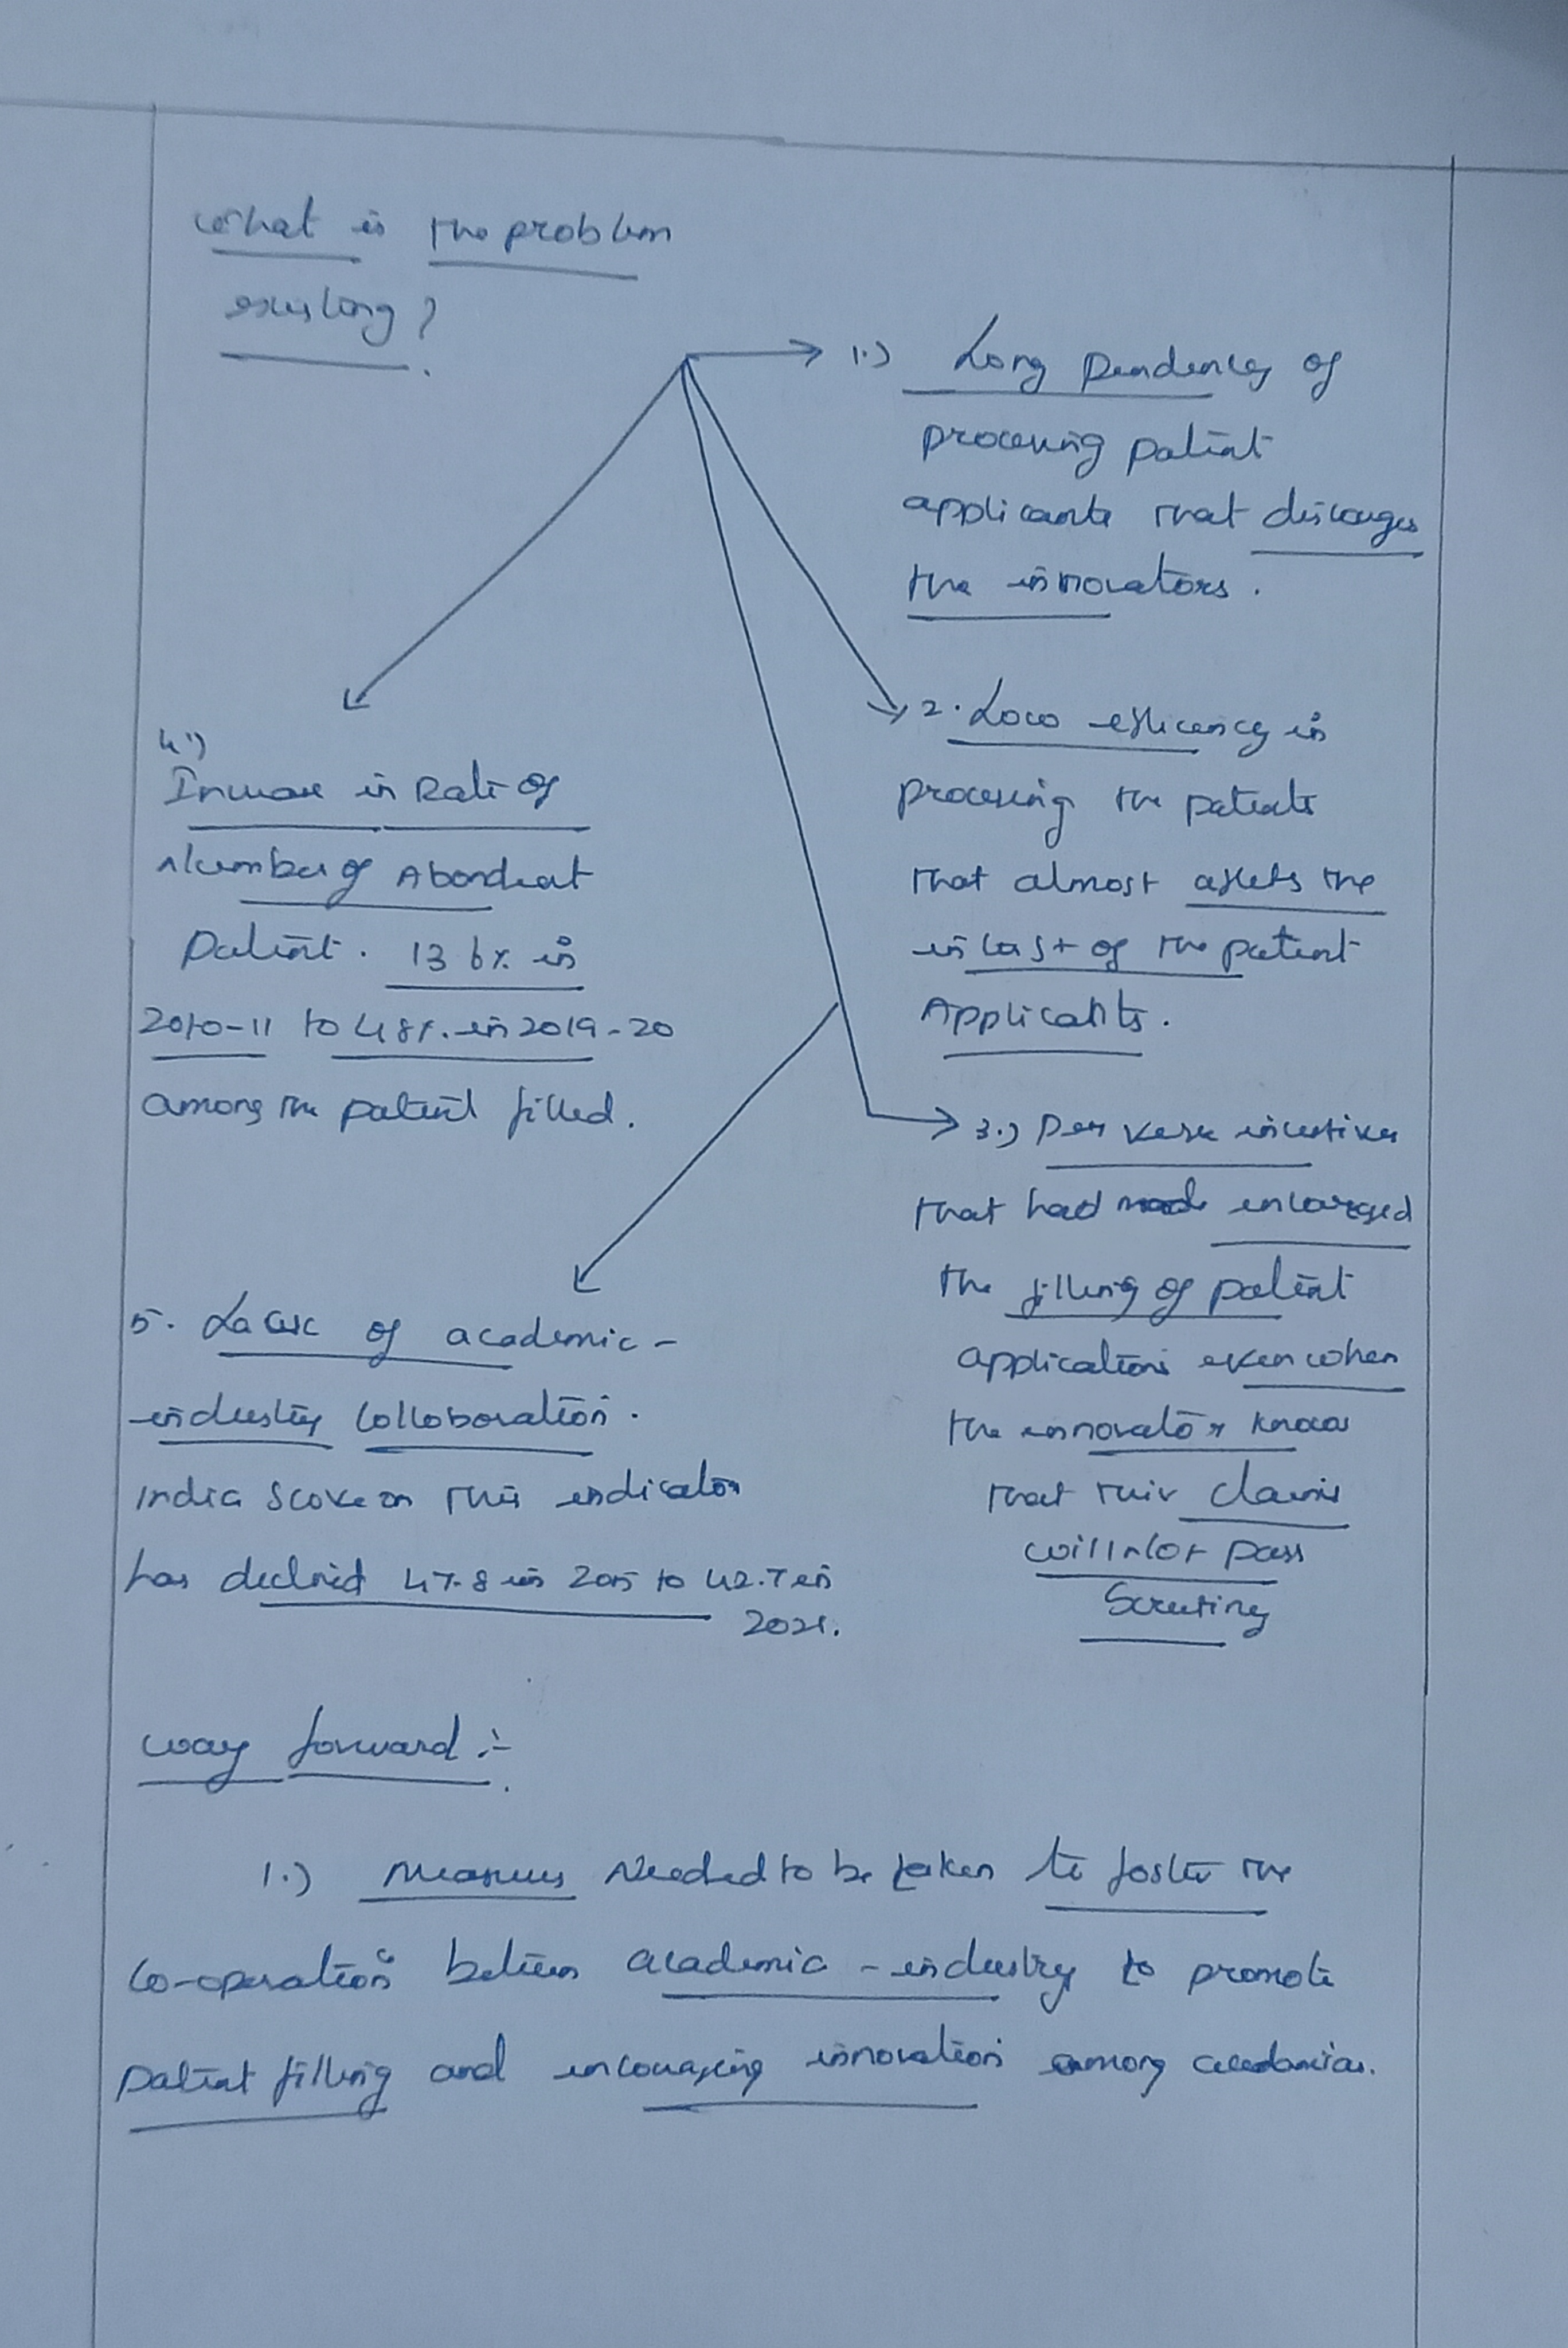 What is the problem
existing?
1.) Long pendency of
processing patent
applicants that discourges
the innovators.
2. Low efficency in
processing the patents
that almost affets the
of the patent
Applicants.
3.) Perverse incentives
that had enlarged
the filling of patent
applications even when
the innovator knows
that their claims
will not pass
Scrutiny
4.)
Increase in Rate of
Number of
Patent. 13.6% in
2010-11 to 48%. in 2019-20
among the patent filled.
5. Lack of academic -
industry Colloboration.
India Score on this indicator
has declined 47.8 in 2015 to 42.7 in
2021.
way forward :-
1.) Measures Needed to be taken to foster the
Co-operation between academic - industry to promote
patent filling and encouraging innovation among academias.